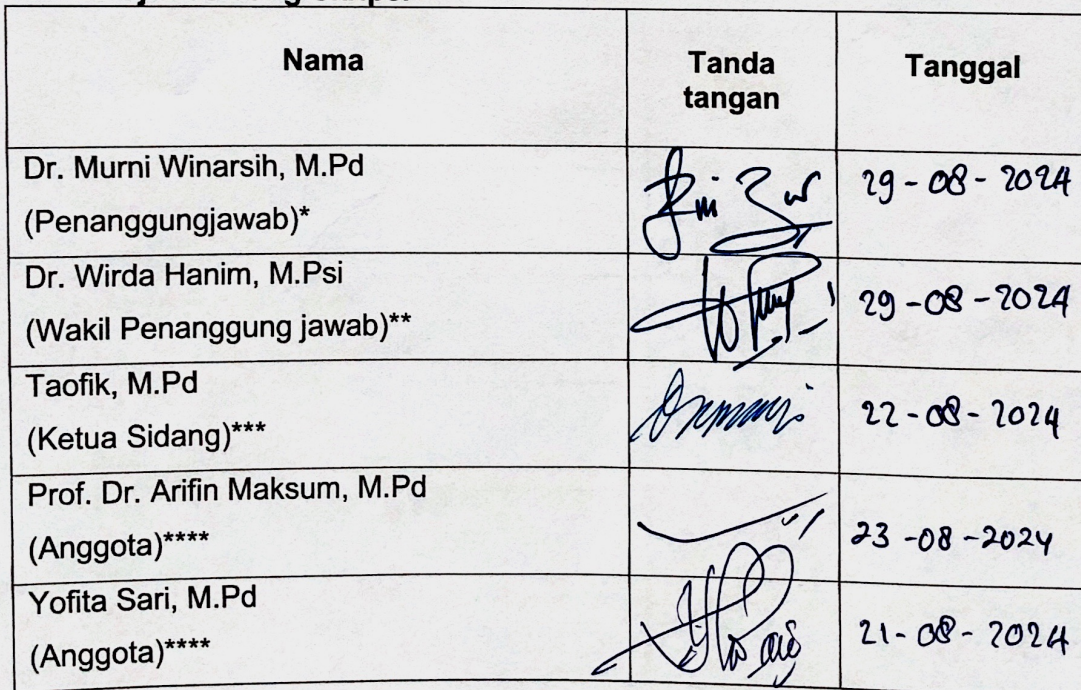 Nama
Tanda
tangan
Tanggal
Dr. Murni Winarsih, M.Pd
(Penanggungjawab)*
29 - 08 - 2024
Dr. Wirda Hanim, M.Psi
(Wakil Penanggung jawab)**
29 - 08 - 2024
Taofik, M.Pd
(Ketua Sidang)***
22 - 08 - 2024
Prof. Dr. Arifin Maksum, M.Pd
(Anggota)****
23 - 08 - 2024
Yofita Sari, M.Pd
(Anggota)****
21 - 08 - 2024